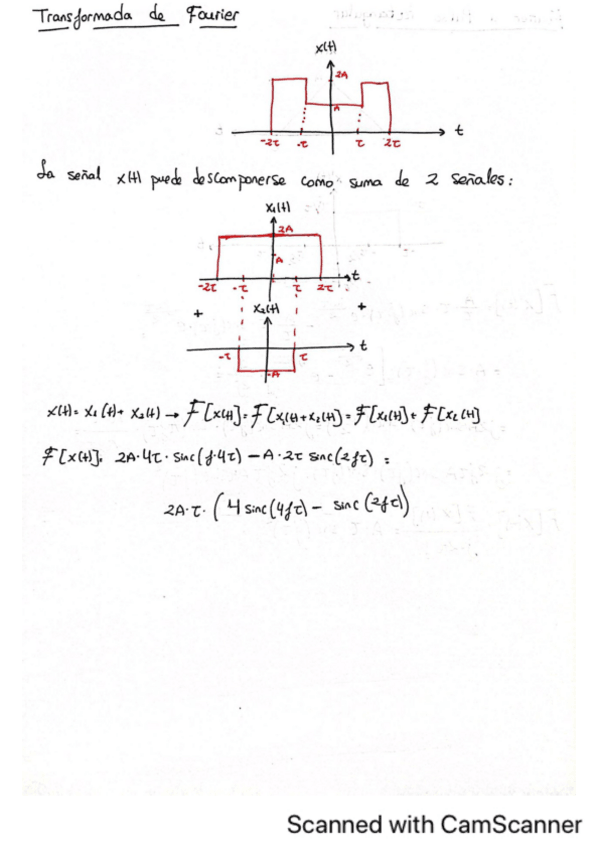 Transformada de Fourier
x(t)
2A
A
-2τ -τ τ 2τ t
La señal x(t) puede descomponerse como suma de 2 señales:
x₁(t)
2A
A
-2τ -τ τ 2τ t
+ x₂(t) +
-τ τ t
-A
x(t)= x₁(t)+ x₂(t) → F[x(t)]= F[x₁(t)+x₂(t)]= F[x₁(t)]+ F[x₂(t)]
F[x(t)]= 2A·4τ·sinc(f·4τ) - A·2τ sinc(2fτ) =
2A·τ·(4 sinc(4fτ) - sinc(2fτ))
Scanned with CamScanner